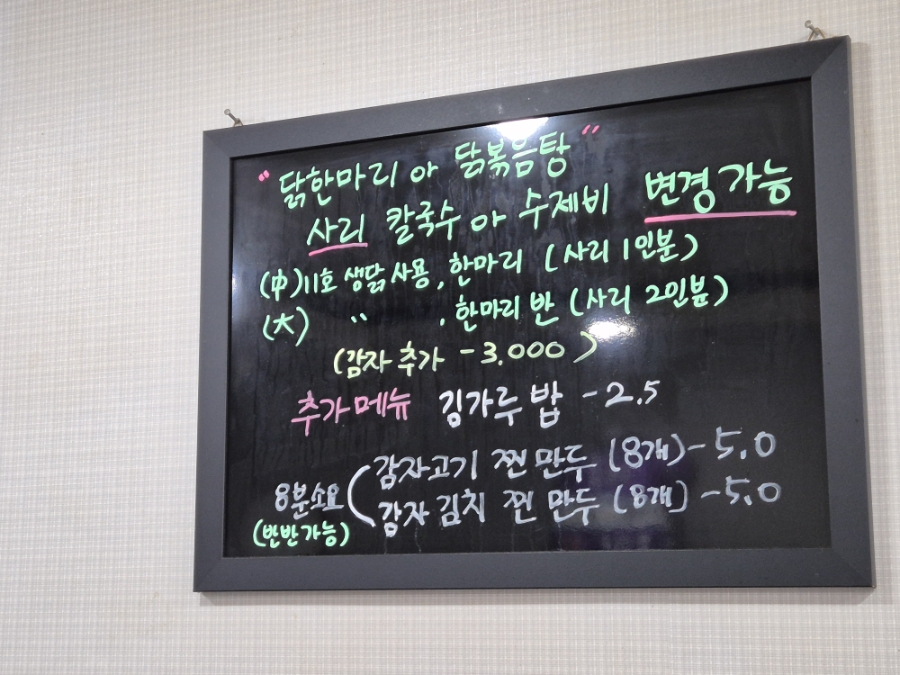 "닭한마리 아 닭볶음탕"
사리 칼국수 아 수제비 변경가능
(中)11호 생닭사용, 한마리 (사리 1인분)
(大) " , 한마리 반 (사리 2인분)
(감자 추가 - 3.000)
추가메뉴 김가루 밥 - 2.5
8분소요 (감자고기 찐만두 (8개) - 5.0
감자김치 찐만두 (8개) - 5.0
(반반가능)